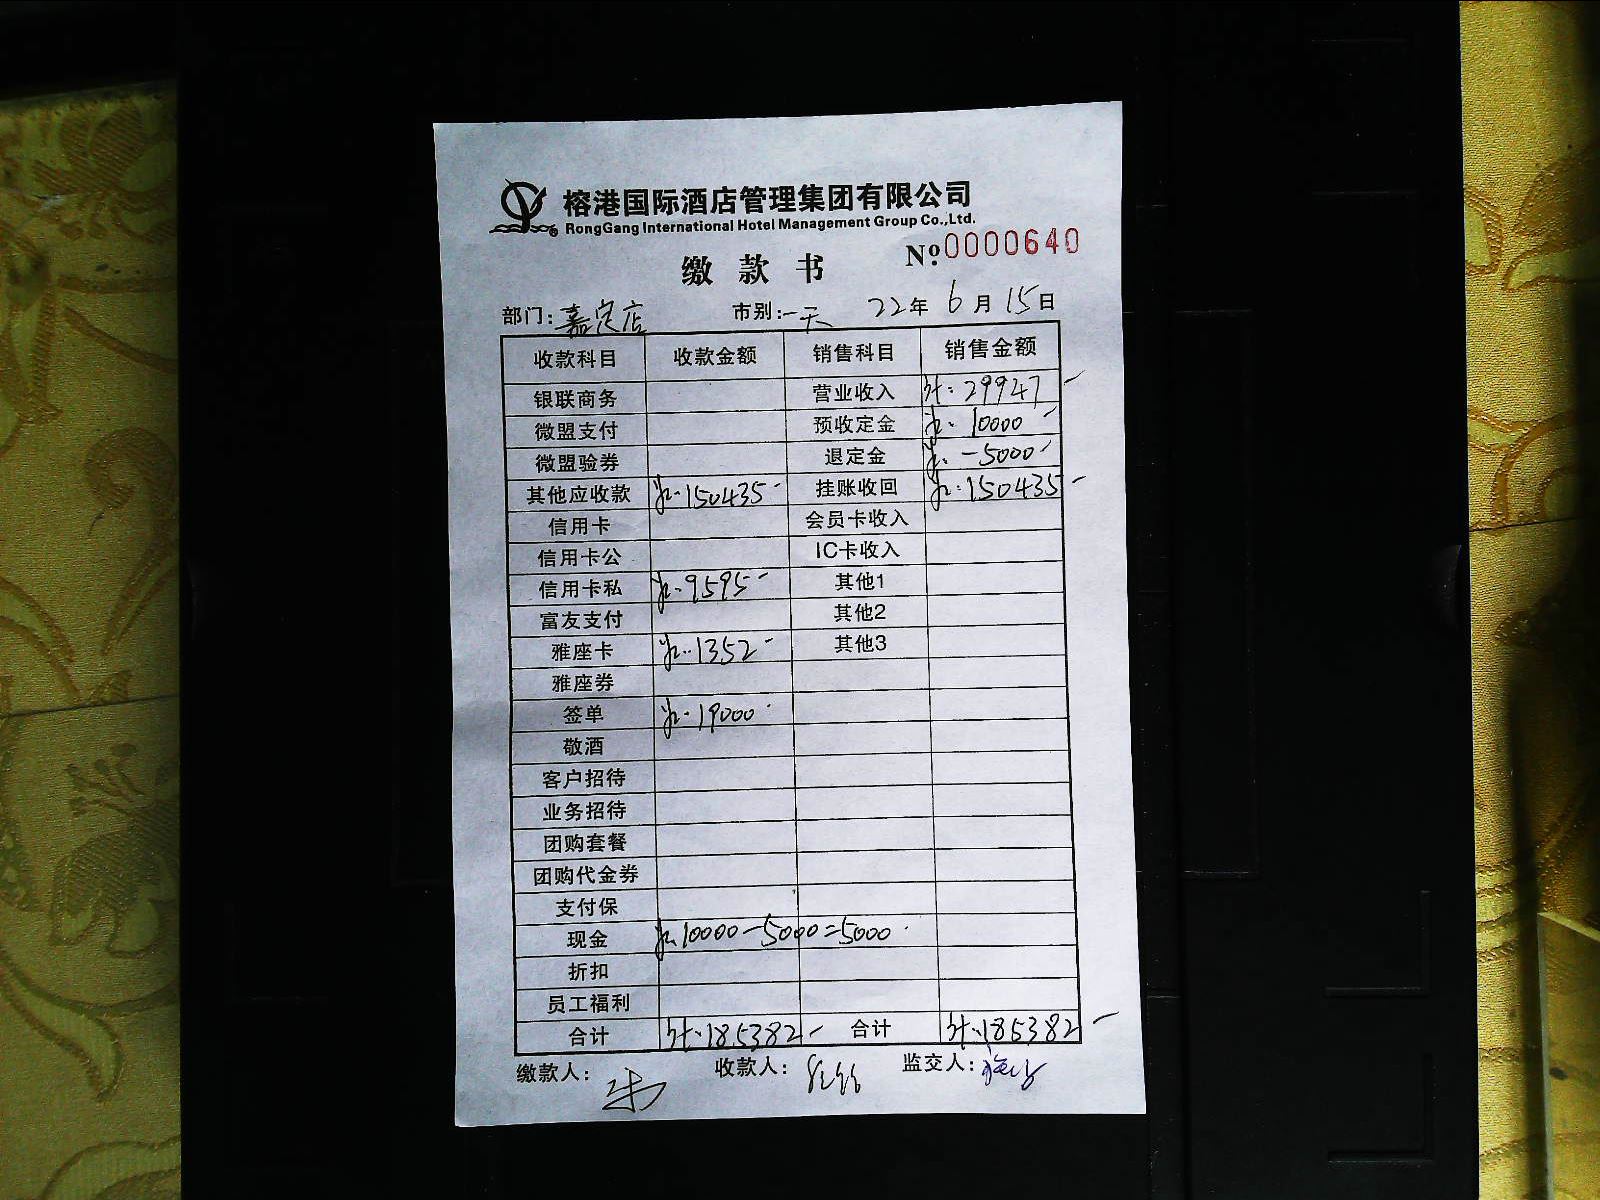 榕港国际酒店管理集团有限公司
RongGang International Hotel Management Group Co.,Ltd.
缴款书 Nº:0000640
部门:嘉定店 市别:一天 22年6月15日
收款科目 收款金额 销售科目 销售金额
银联商务 营业收入 29947
微盟支付 预收定金 10000
微盟验券 退定金 -5000
其他应收款 150435 挂账收回 150435
信用卡 会员卡收入
信用卡公 IC卡收入
信用卡私 9595 其他1
富友支付 其他2
雅座卡 1352 其他3
雅座券
签单 19000
敬酒
客户招待
业务招待
团购套餐
团购代金券
支付保
现金 10000-5000=5000
折扣
员工福利
合计 185382 合计 185382
缴款人: 收款人: 监交人: